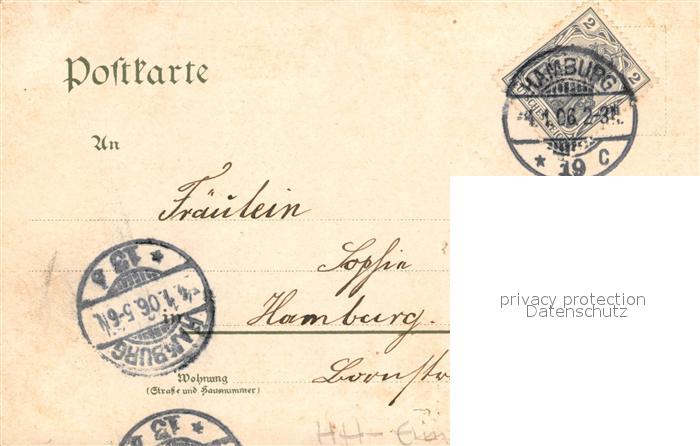 Postkarte
2
2
HAMBURG
4.1.06. 2-3N.
* 19 C
An
Fräulein
Sophie
privacy protection
Datenschutz
in Hamburg.
HAMBURG
4.1.06. 5-6N.
* 13
Wohnung
(Straße und Hausnummer)
Bornstr
13
HH-